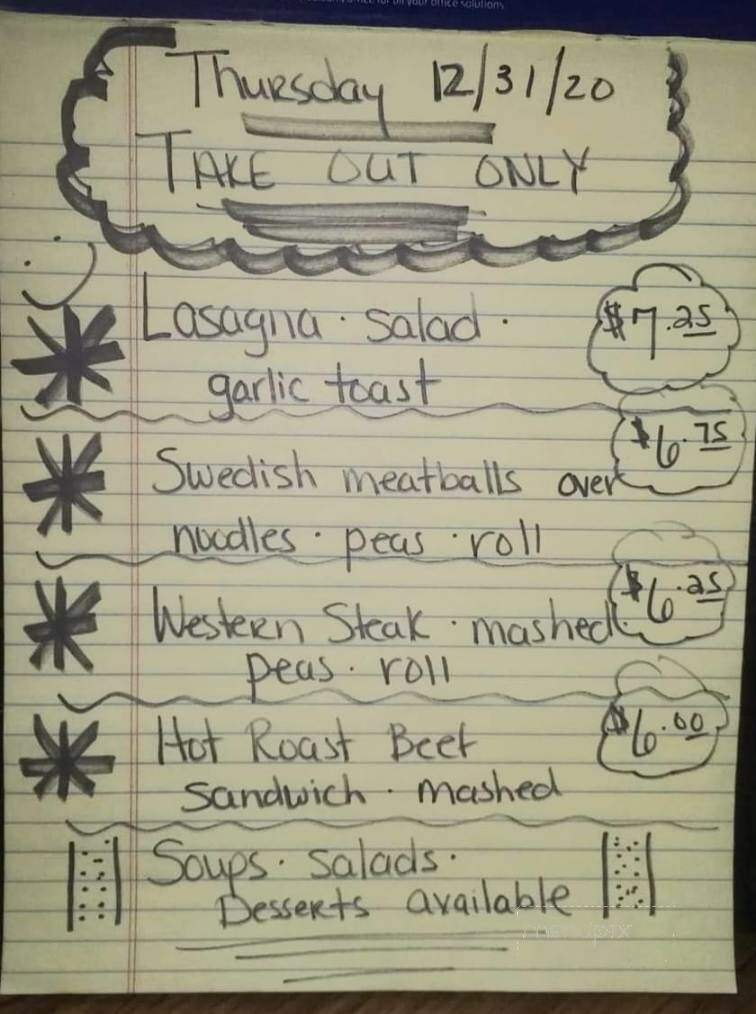 for all your office solutions
Thursday 12/31/20
TAKE OUT ONLY
Lasagna · salad ·
$7.25
garlic toast
$6.75
Swedish meatballs over
noodles · peas · roll
$6.25
Western Steak · mashed
peas · roll
$6.00
Hot Roast Beef
sandwich · mashed
Soups · salads ·
Desserts available